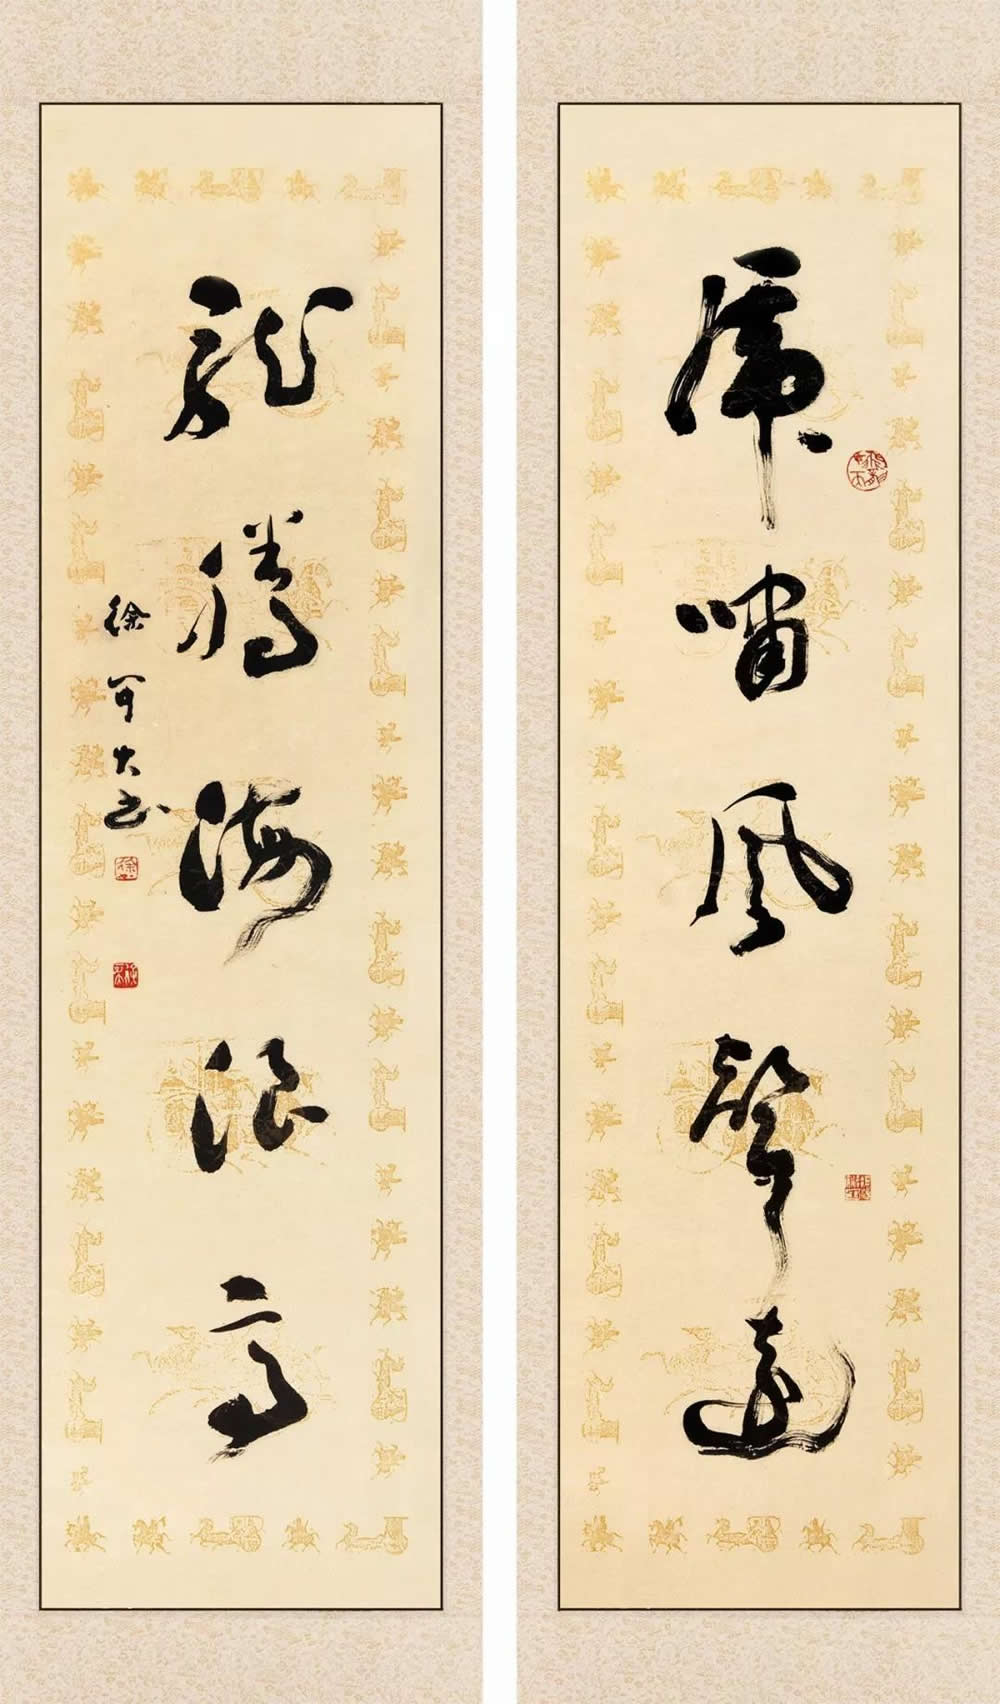 虎啸风声远
龙腾海浪高
徐可大书